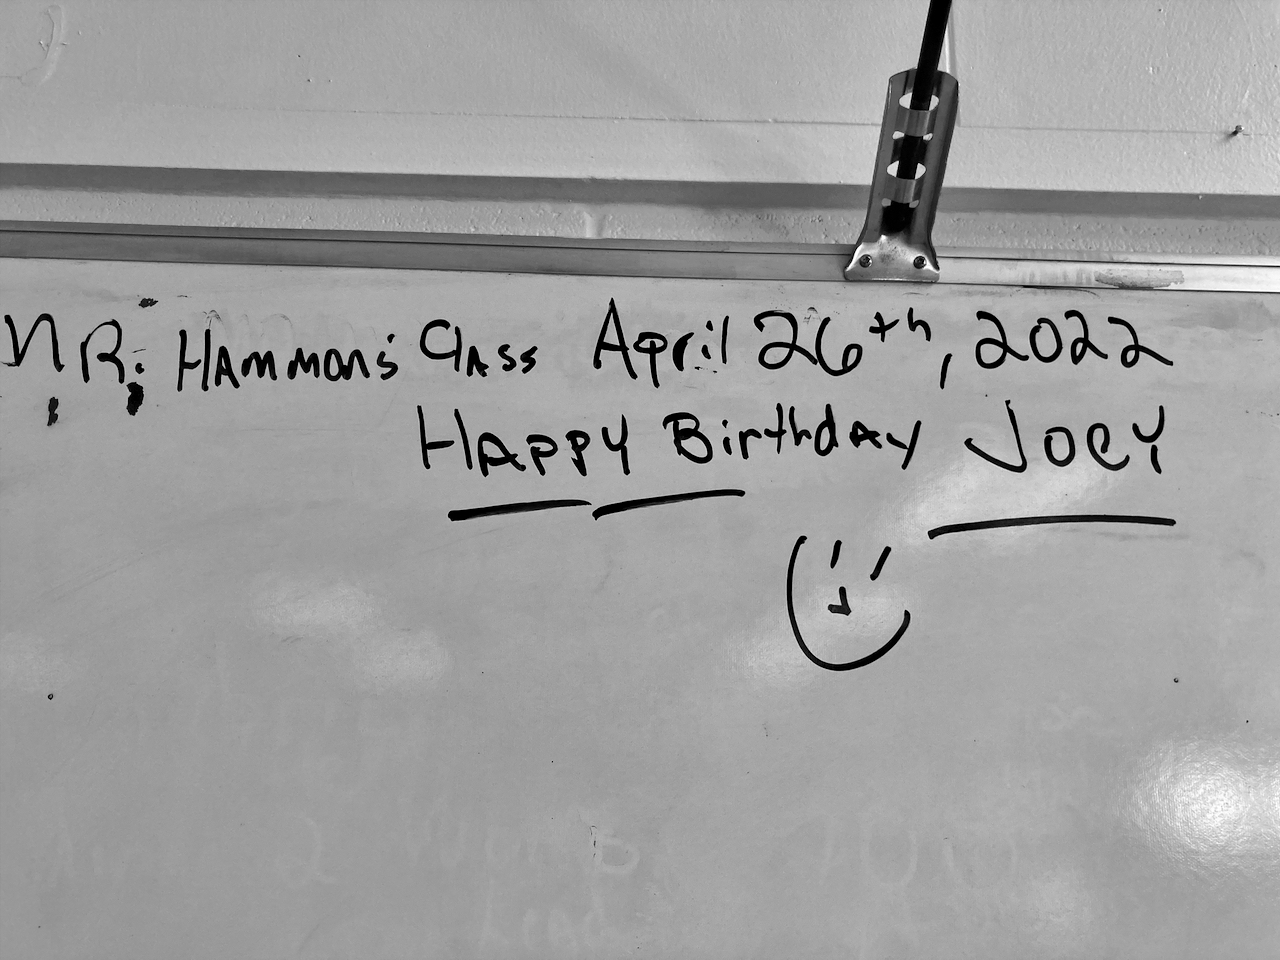 MR. HAMMON'S CLASS April 26th, 2022
HAPPY Birthday JOEY